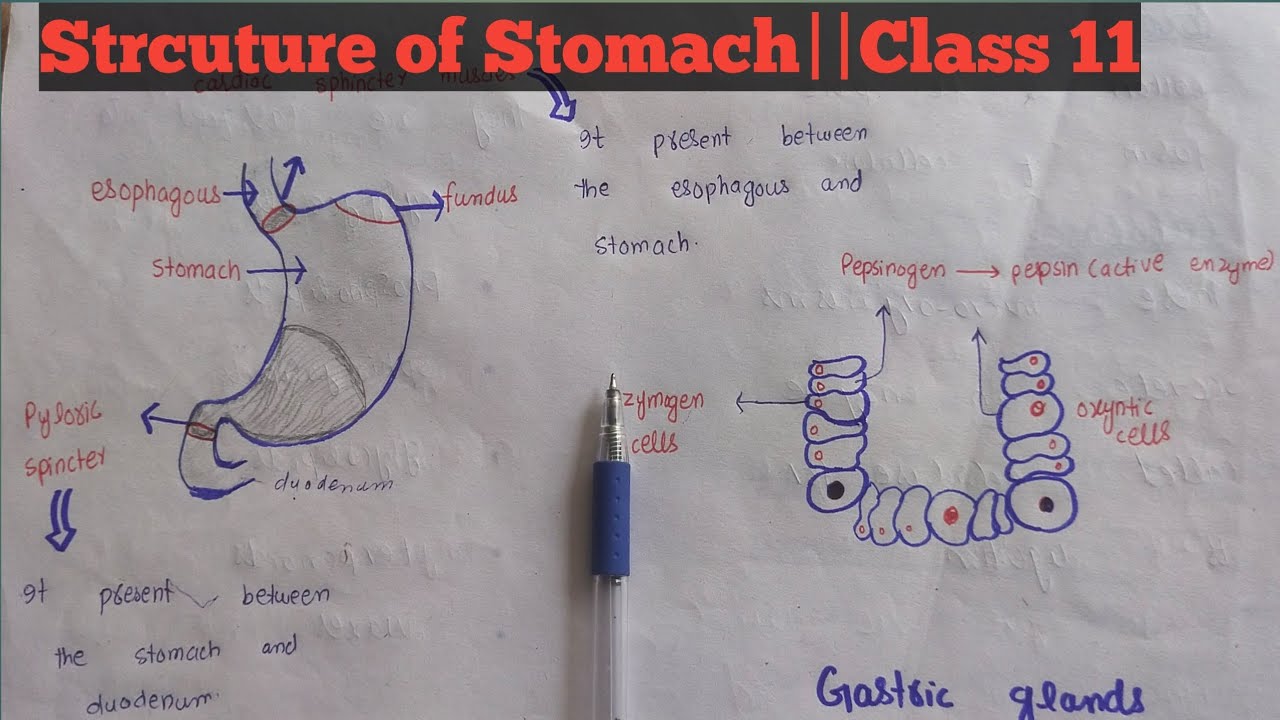 Strcuture of Stomach||Class 11
cardiac sphincter muscles
It present between
the esophagous and
stomach.
esophagous
fundus
stomach
Pepsinogen → pepsin (active enzyme)
zymogen
cells
oxyntic
cells
Pyloric
spincter
duodenum
It present between
the stomach and
duodenum.
Gastric glands